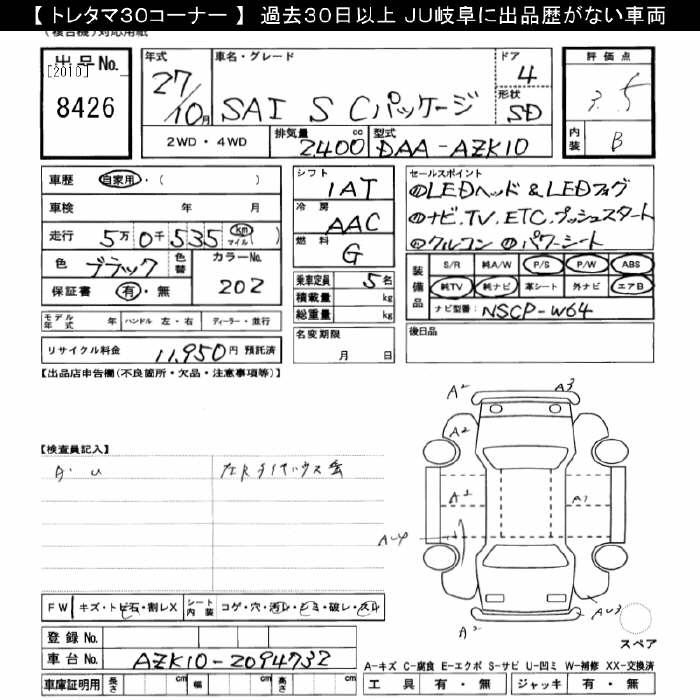 【 トレタマ30コーナー 】 過去30日以上 JU岐阜に出品歴がない車両
(複合機)対応用紙
出品No.
[2010]
8426
年式
27/10月
車名・グレード
SAI S Cパッケージ
ドア
4
形状
SD
2WD・4WD
排気量
2400 cc
型式
DAA-AZK10
評価点
3.5
内装
B
車歴 自家用・( )
車検 年 月
走行 5万0千535 km マイル ( )
色 ブラック
色替
カラーNo.
202
保証書 有・無
モデル年式 年 ハンドル 左・右 ディーラー・並行
リサイクル料金 11,950円 預託済
シフト
1AT
冷房
AAC
燃料
G
乗車定員 5名
積載量 kg
総重量 kg
名変期限
月 日
セールスポイント
LEDヘッド & LEDフォグ
ナビ.TV.ETC.プッシュスタート
クルコン パワーシート
装備品
S/R 純A/W P/S P/W ABS
純TV 純ナビ 革シート 外ナビ エアB
ナビ型番: NSCP-W64
後日品
【出品店申告欄(不良箇所・欠品・注意事項等)】
【検査員記入】
A・U
A2 A3
A2
A2 A1
A-U4
A2
AU3
スペア
FW キズ・トビ石・割レX
シート内装 コゲ・穴・汚レ・シミ・破レ・スレ
登録No.
車台No. AZK10-2094732
車庫証明用 長さ cm 幅 cm 高さ cm
A-キズ C-腐食 E-エクボ S-サビ U-凹ミ W-補修 XX-交換済
工具 有・無 ジャッキ 有・無